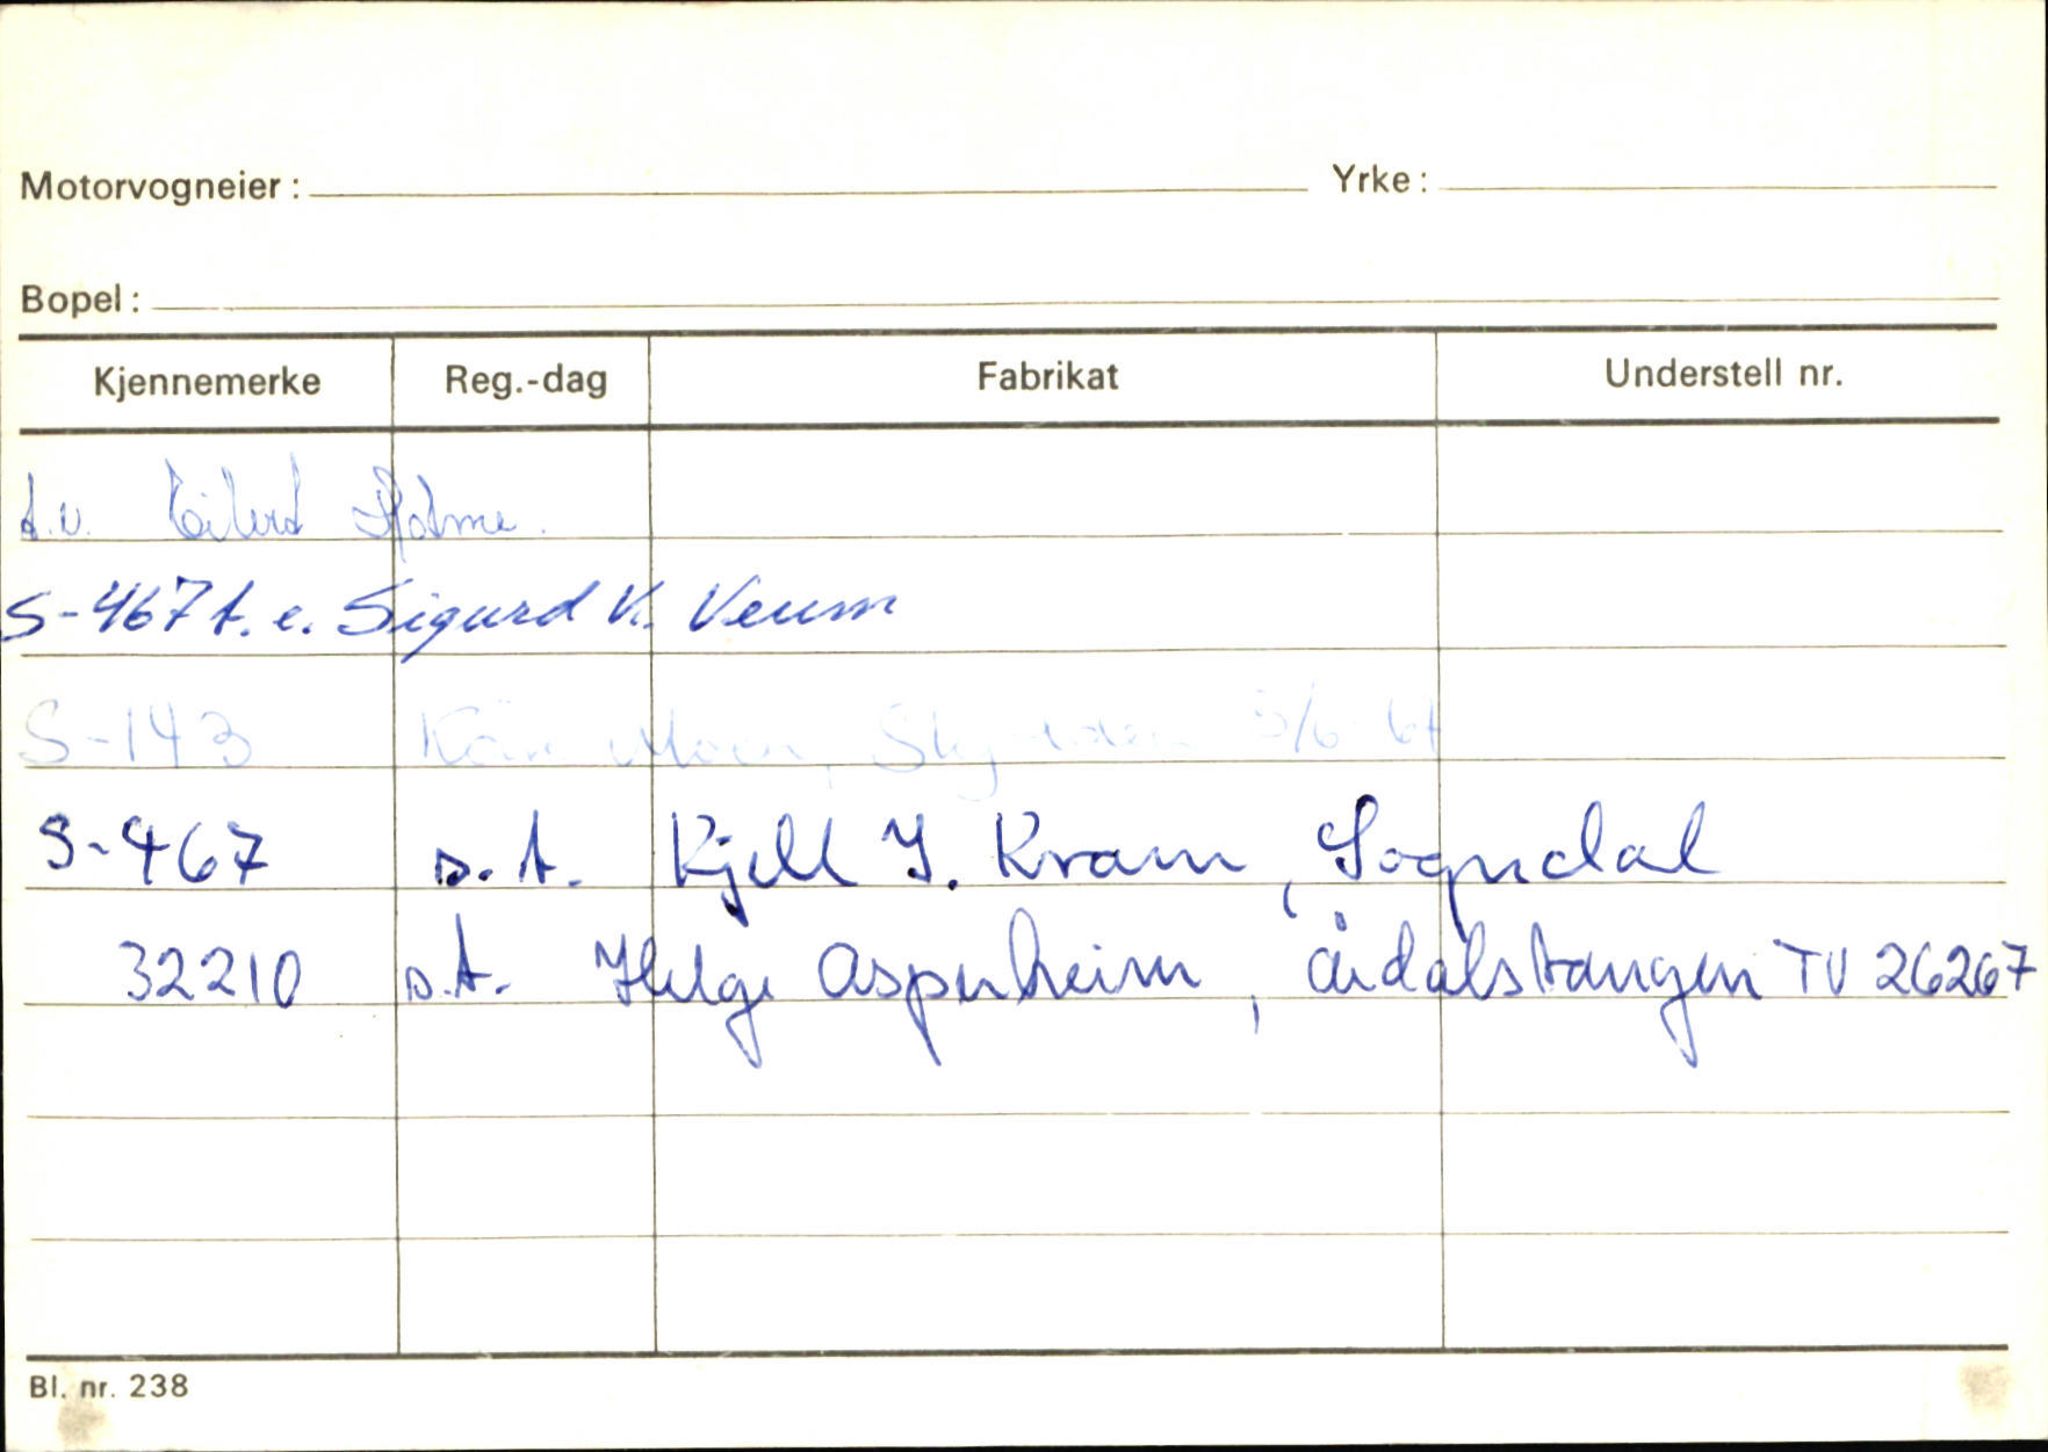 Motorvogneier: Yrke:
Bopel:
Kjennemerke Reg.-dag Fabrikat Understell nr.
t.v. Eilert Holme.
S-467 t.e. Sigurd K. Veum
S-143 Moen, 5/6 67
S-467 s.t. Kjell I. Kram, Sogndal
32210 s.t. Helge Aspenheim, Årdalstangen TV 26267
Bl. nr. 238